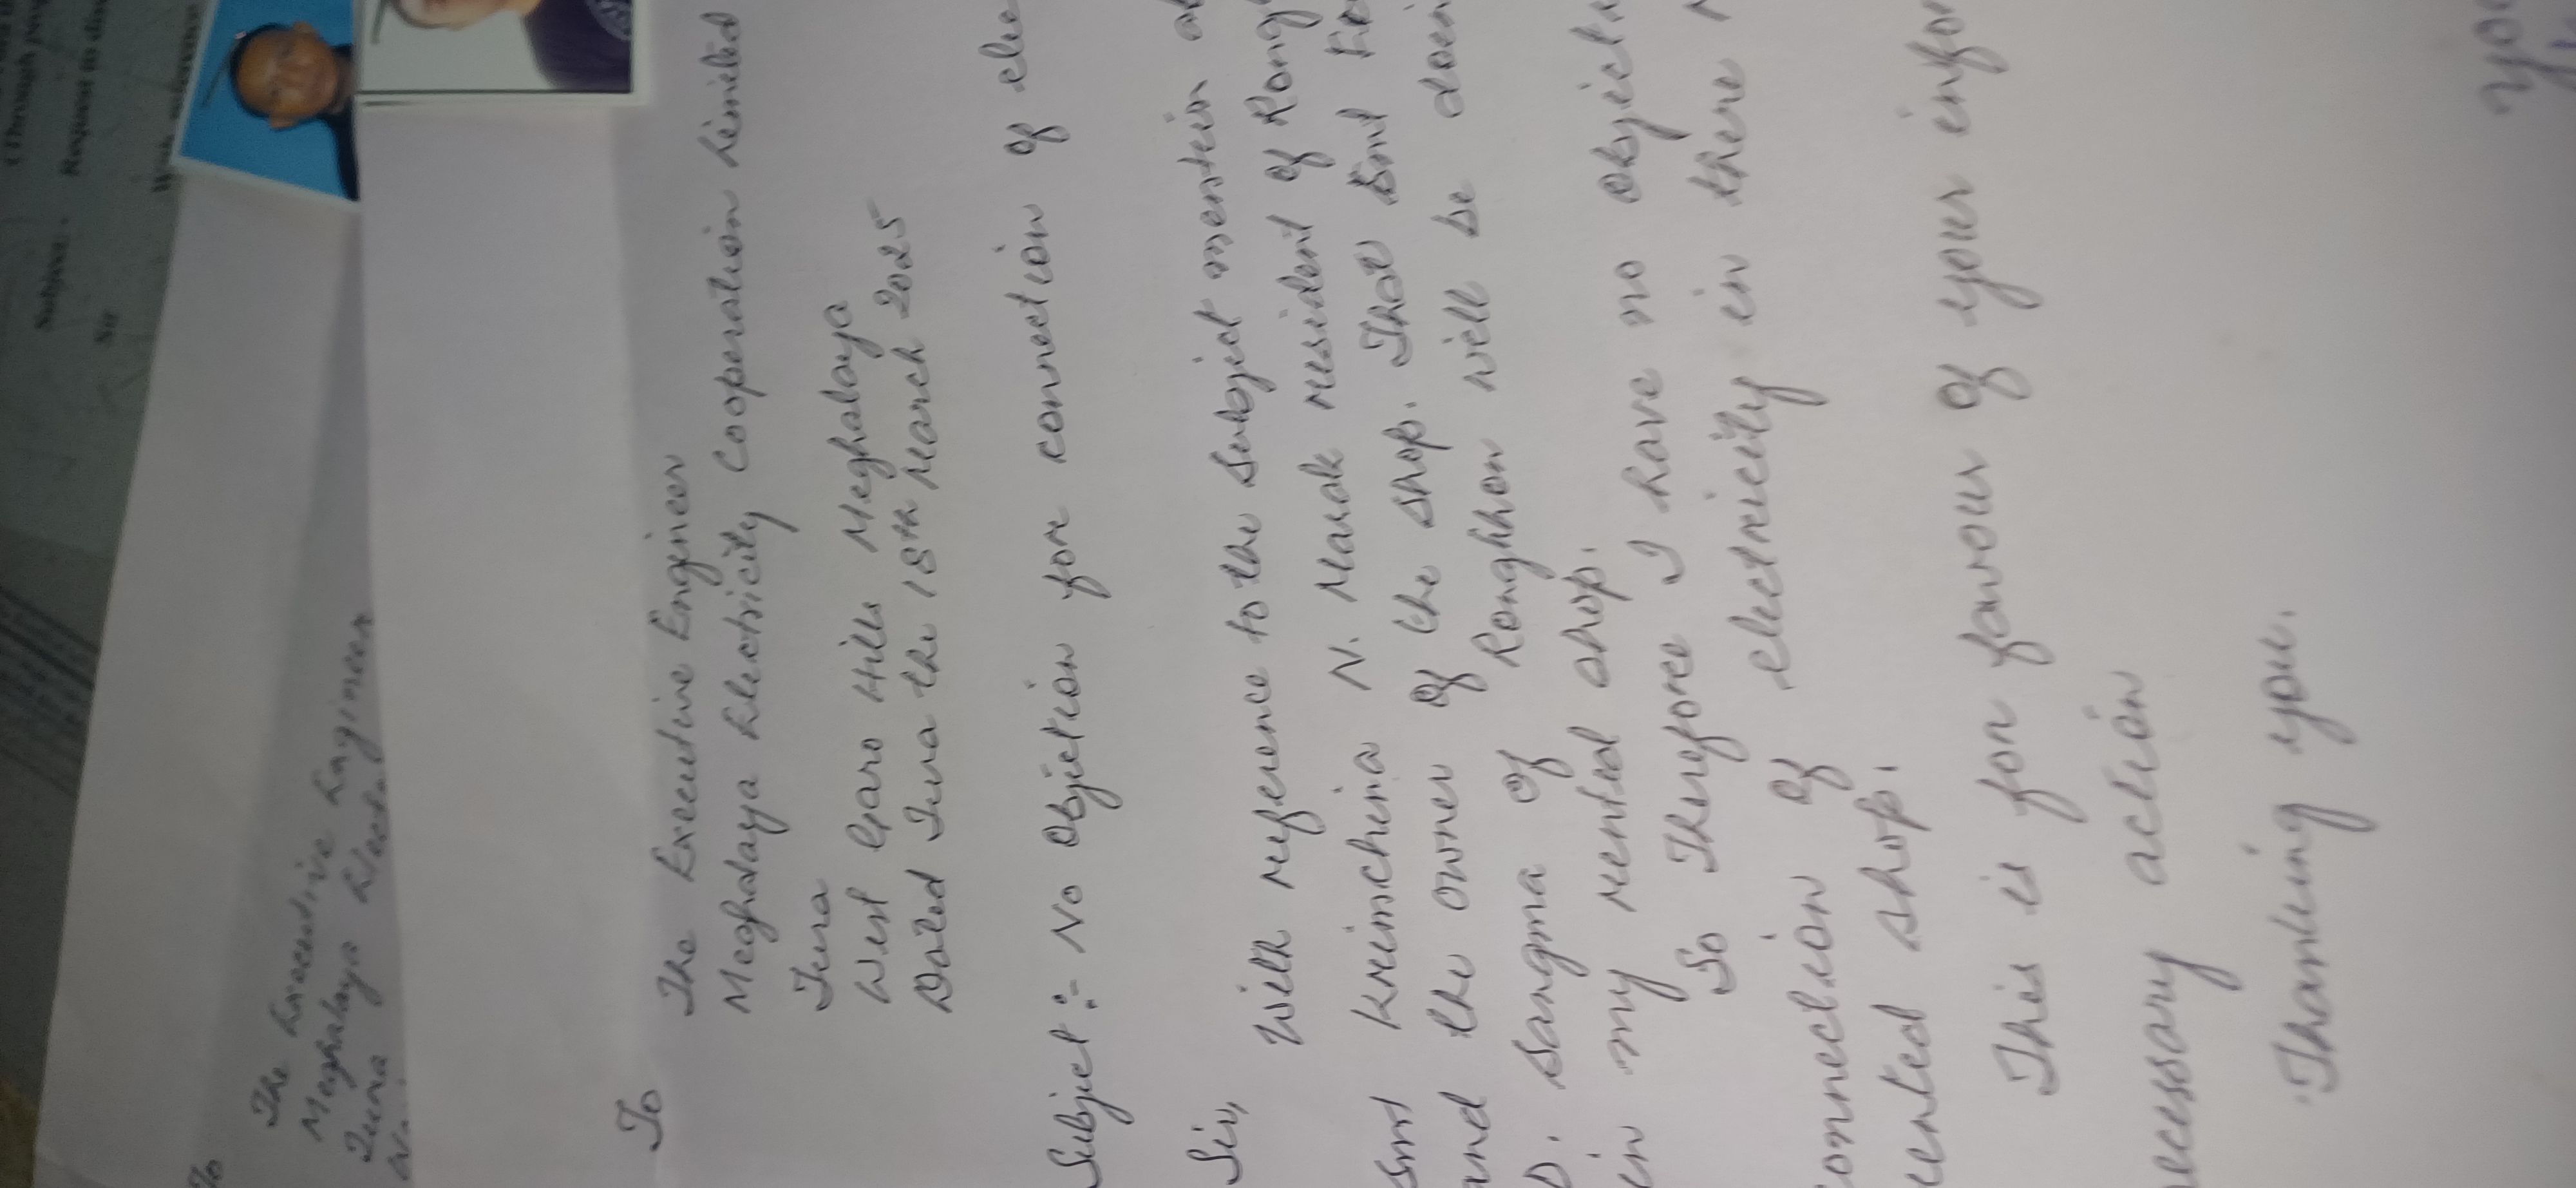 (Through
Subject: - Request to
Sir
With reference
To
The Executive Engineer
Meghalaya
Tura
To
The Executive Engineer
Meghalaya Electricity Cooperation Limited
Tura
West Garo Hills Meghalaya
Dated Tura the 18th March 2025
Subject :- No Objection for connection of ele
Sir,
With reference to the subject mention a
smt Kreimchina N. Marak resident of Rong
and the owner of the shop. That smt
D. Sangma of Rongkhon will be doein
in my rented shop.
So Therefore I have no object
connection of electricity in there
rented shop.
This is for favour of your infor
necessary action
Thanking you.
you